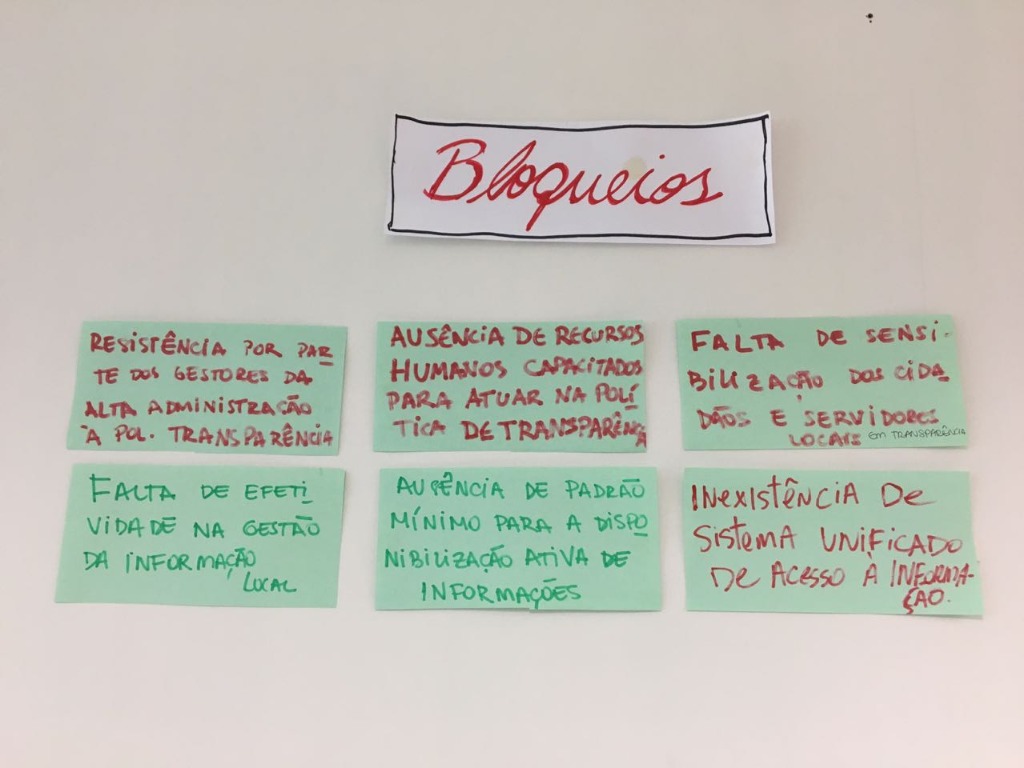 Bloqueios
RESISTÊNCIA POR PAR
TE DOS GESTORES DA
ALTA ADMINISTRAÇÃO
À POL. TRANSPARÊNCIA
AUSÊNCIA DE RECURSOS
HUMANOS CAPACITADOS
PARA ATUAR NA POLÍ
TICA DE TRANSPARÊNCIA
FALTA DE SENSI-
BILIZAÇÃO DOS CIDA
DÃOS E SERVIDORES
LOCAIS EM TRANSPARÊNCIA
FALTA DE EFETI
VIDADE NA GESTÃO
DA INFORMAÇÃO
LOCAL
AUSÊNCIA DE PADRÃO
MÍNIMO PARA A DISPO
NIBILIZAÇÃO ATIVA DE
INFORMAÇÕES
INEXISTÊNCIA DE
SISTEMA UNIFICADO
DE ACESSO À INFORMA-
ÇÃO.